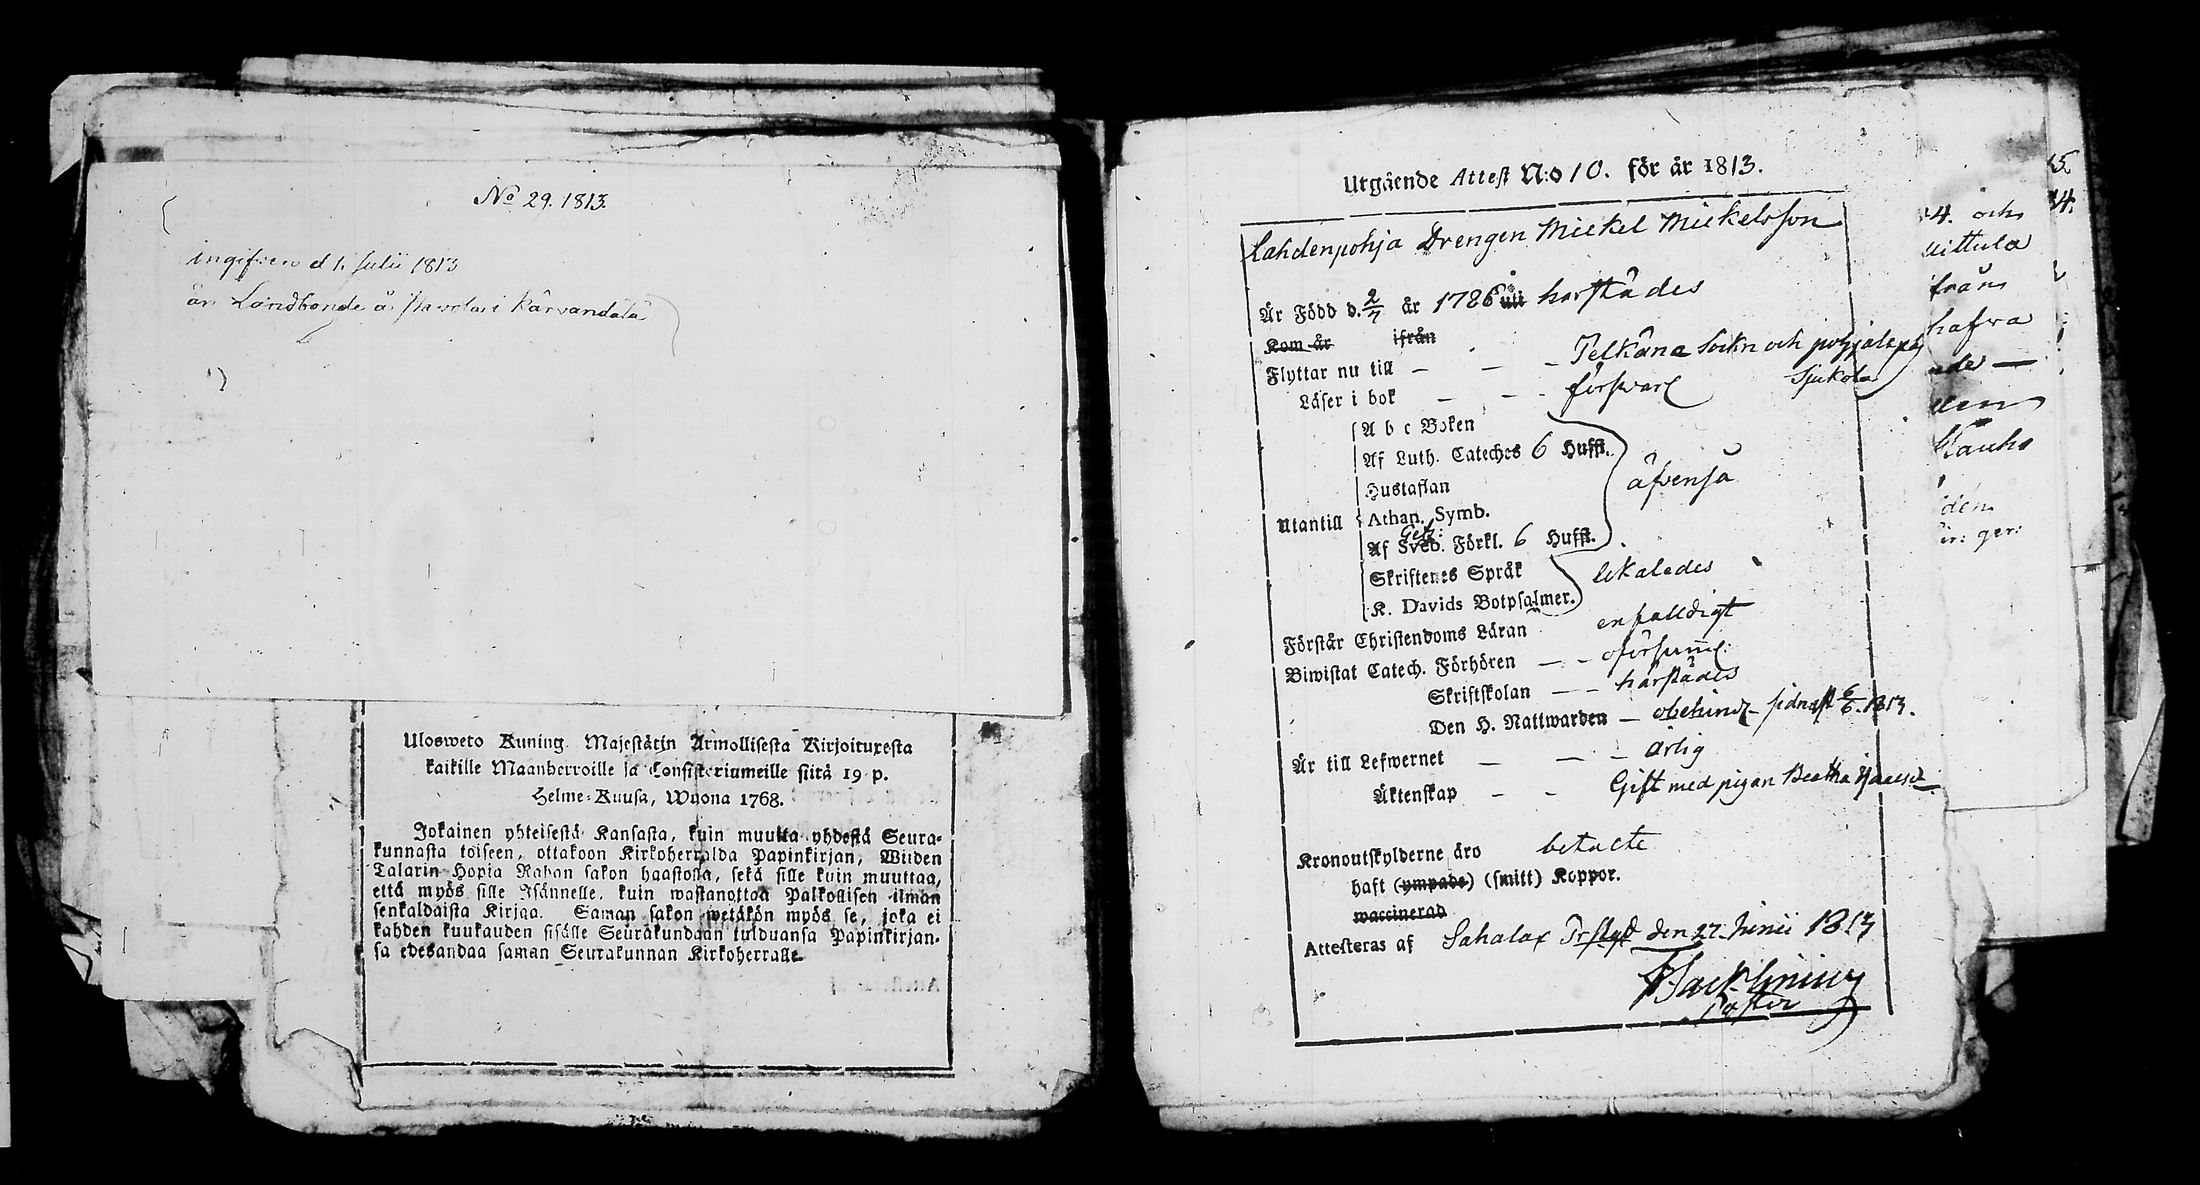 No 29. 1813.
ingifven d 1. Julii 1813
är Landbonde å Pavola i Kärvandala
Ulosweto Kuning. Majestätin Armollisesta Kirjoituxesta
kaikille Maanherroille ja Consistoriumeille siitä 19 p.
Helme-Kuusa, Wuona 1768.
Jokainen yhteisestä Kansasta, kuin muutta yhdestä Seura-
kunnasta toiseen, ottakoon Kirkoherralda Papinkirjan, Wiiden
Talarin Hopia Rahan sakon haastolla, sekä sille kuin muuttaa,
että myös sille Isännelle, kuin wastanottaa Palkollisen ilman
senkaldaista Kirjaa. Saman sakon wetäkön myös se, joka ei
kahden kuukauden sisälle Seurakundaan tulduansa Papinkirjan-
sa edesandaa saman Seurakunnan Kirkoherralle.
Utgående Attest N:o 10. för år 1813.
Lahdenpohja Drengen Mickel Mickelsson
Är Född d. 2/7 år 1786 uti härstädes
Kom år ifrån
Flyttar nu till — — — Pelkäne Sockn och pohjalax
Sjukola
Läser i bok — — - försvarl
A b c Boken
Af Luth. Cateches 6 Huffst.
Hustaflan
äfvenså
Utantill Athan. Symb.
Af Sveb. Förkl. 6 Huffst.
Skriftenes Språk
likaledes
K. Davids Botpsalmer.
Förstår Christendoms Läran enfalldigt
Biwistat Catech. Förhören — - oförsuml:
Skriftskolan — - härstädes
Den H. Nattwarden — obehindr sidnast 6/6. 1813.
Är till Lefwernet — — — ärlig
Äktenskap — - Gift med pigan Beatha
Kronoutskylderne äro betalte
haft (ympade) (smitt) Koppor.
waccinerad
Attesteras af Sahalax Prstgd den 27. Junii 1813
Pastor
4. och
från
hafva
den